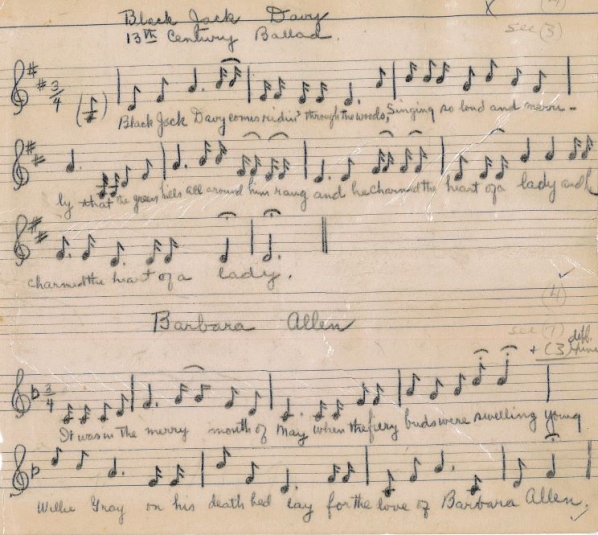 X
Black Jack Davy
13th Century Ballad.
see (3)
3/4
Black Jack Davy comes ridin' through the woods, Singing so loud and merri-
ly that the green hills all around him rang and he charmed the heart of a lady and
charmed the heart of a lady.
(4)
Barbara Allen
see (1)
+ (3
3/4
It was in the merry month of May when the firry buds were swelling Young
Willie Gray on his death bed lay for the love of Barbara Allen.